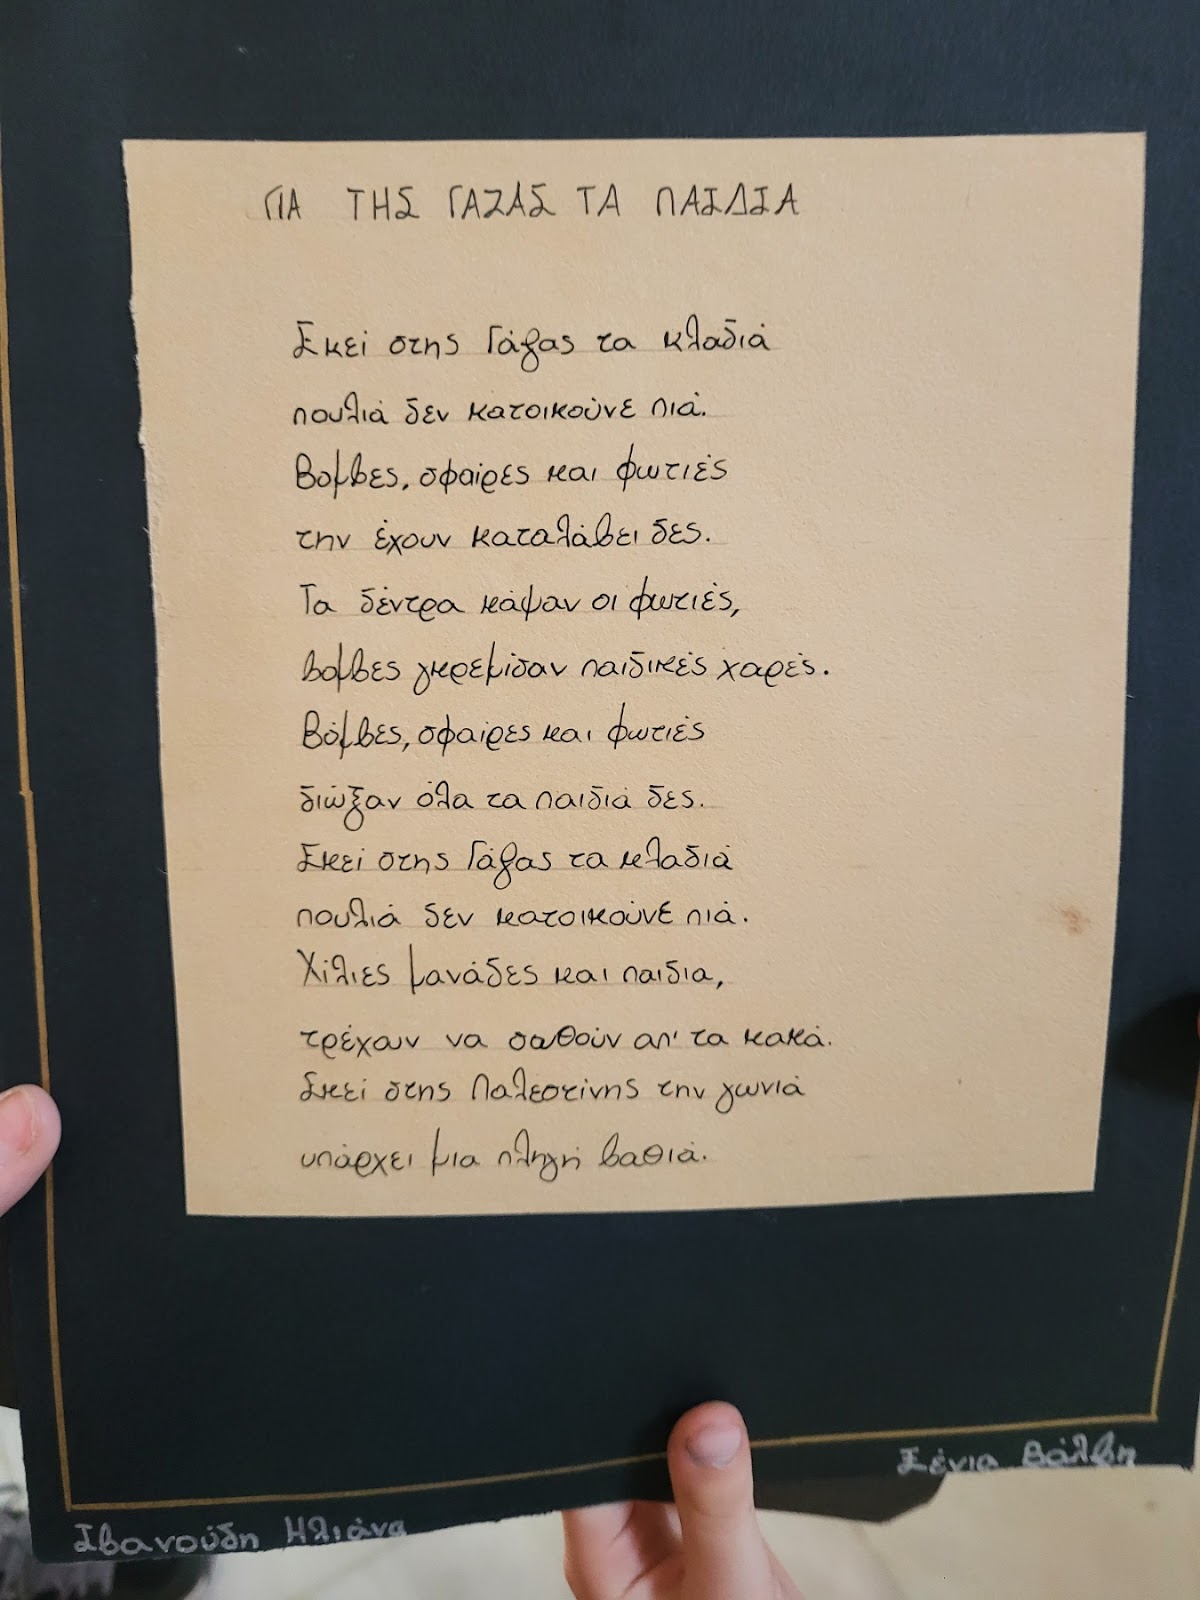 ΓΙΑ ΤΗΣ ΓΑΖΑΣ ΤΑ ΠΑΙΔΙΑ
Εκεί στης Γάζας τα κλαδιά
πουλιά δεν κατοικούνε πιά.
Βόμβες, σφαίρες και φωτιές
την έχουν καταλάβει δες.
Τα δέντρα κάψαν οι φωτιές,
βόμβες γκρεμίσαν παιδικές χαρές.
Βόμβες, σφαίρες και φωτιές
διώξαν όλα τα παιδιά δες.
Εκεί στης Γάζας τα κλαδιά
πουλιά δεν κατοικούνε πιά.
Χίλιες μανάδες και παιδια,
τρέχουν να σωθούν απ' τα κακά.
Εκεί στης Παλεστίνης την γωνιά
υπάρχει μια πληγή βαθιά.
Ξένια Βάλβη
Ιβανούδη Ηλιάνα